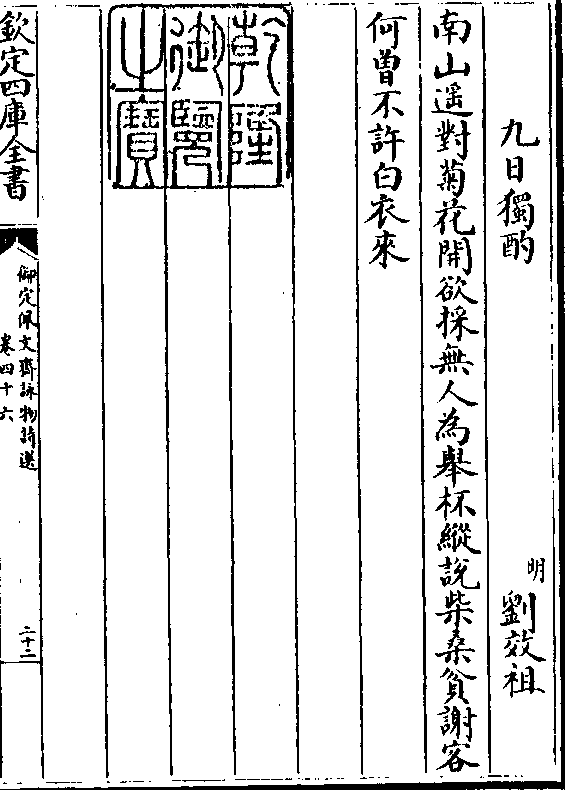 九日獨酌
明 劉效祖
南山遥對菊花開欲採無人為舉杯縱說柴桑貧謝客
何曾不許白衣來
乾隆
御覽
之寶
欽定四庫全書
御定佩文齋詠物詩選
卷四十六
二十二